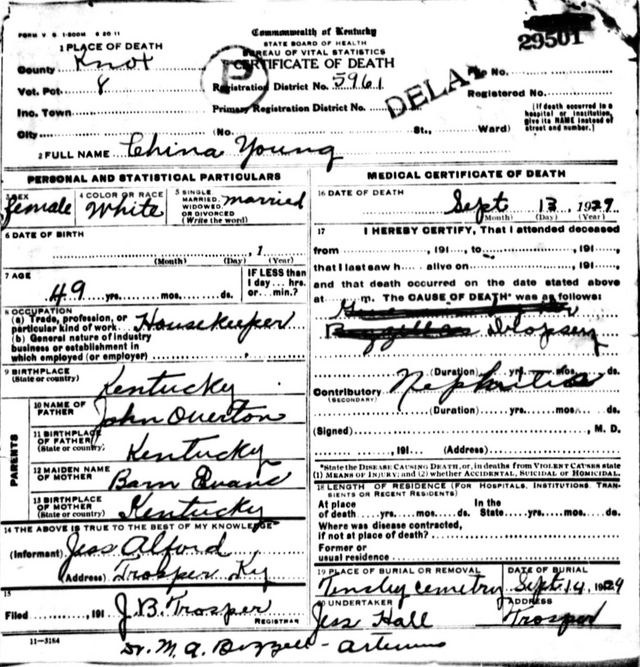 FORM V. S. 1-200M 6 20 11
Commonwealth of Kentucky
STATE BOARD OF HEALTH
BUREAU OF VITAL STATISTICS
CERTIFICATE OF DEATH
29501
1 PLACE OF DEATH
County Knox
Vot. Pct 8
Inc. Town
City
(No. St., Ward)
P
Registration District No. 5961
Primary Registration District No.
DELA
File No.
Registered No.
(If death occurred in a hospital or institution, give its NAME instead of street and number.)
2 FULL NAME China Young
PERSONAL AND STATISTICAL PARTICULARS
SEX female
4 COLOR OR RACE White
5 SINGLE, MARRIED, WIDOWED, OR DIVORCED (Write the word) married
6 DATE OF BIRTH
, 1
(Month) (Day) (Year)
7 AGE
49 yrs. mos. ds.
IF LESS than 1 day... hrs. or... min.?
8 OCCUPATION
(a) Trade, profession, or particular kind of work Housekeeper
(b) General nature of industry business or establishment in which employed (or employer)
9 BIRTHPLACE (State or country) Kentucky
PARENTS
10 NAME OF FATHER John Overton
11 BIRTHPLACE OF FATHER (State or country) Kentucky
12 MAIDEN NAME OF MOTHER Barn Evans
13 BIRTHPLACE OF MOTHER (State or country) Kentucky
14 THE ABOVE IS TRUE TO THE BEST OF MY KNOWLEDGE
(Informant) Jess Alford
(Address) Trosper Ky
15
Filed , 191 J. B. Trosper
REGISTRAR
11-3184
MEDICAL CERTIFICATE OF DEATH
16 DATE OF DEATH
Sept 13, 1929
(Month) (Day) (Year)
17 I HEREBY CERTIFY, That I attended deceased
from , 191 , to , 191 ,
that I last saw h alive on , 191 ,
and that death occurred on the date stated above
at m. The CAUSE OF DEATH* was as follows:
Dropsy
(Duration) yrs. mos. ds.
Contributory (SECONDARY) Nephritis
(Duration) yrs. mos. ds.
(Signed) , M. D.
, 191 (Address)
*State the DISEASE CAUSING DEATH, or, in deaths from VIOLENT CAUSES state (1) MEANS OF INJURY; and (2) whether ACCIDENTAL, SUICIDAL or HOMICIDAL.
18 LENGTH OF RESIDENCE (FOR HOSPITALS, INSTITUTIONS, TRANSIENTS OR RECENT RESIDENTS)
At place of death yrs. mos. ds. In the State yrs. mos. ds.
Where was disease contracted, if not at place of death?
Former or usual residence
19 PLACE OF BURIAL OR REMOVAL Tinsley Cemetry
DATE OF BURIAL Sept. 14, 1929
20 UNDERTAKER Jess Hall
ADDRESS Trosper
Dr. M. A. - Artemus